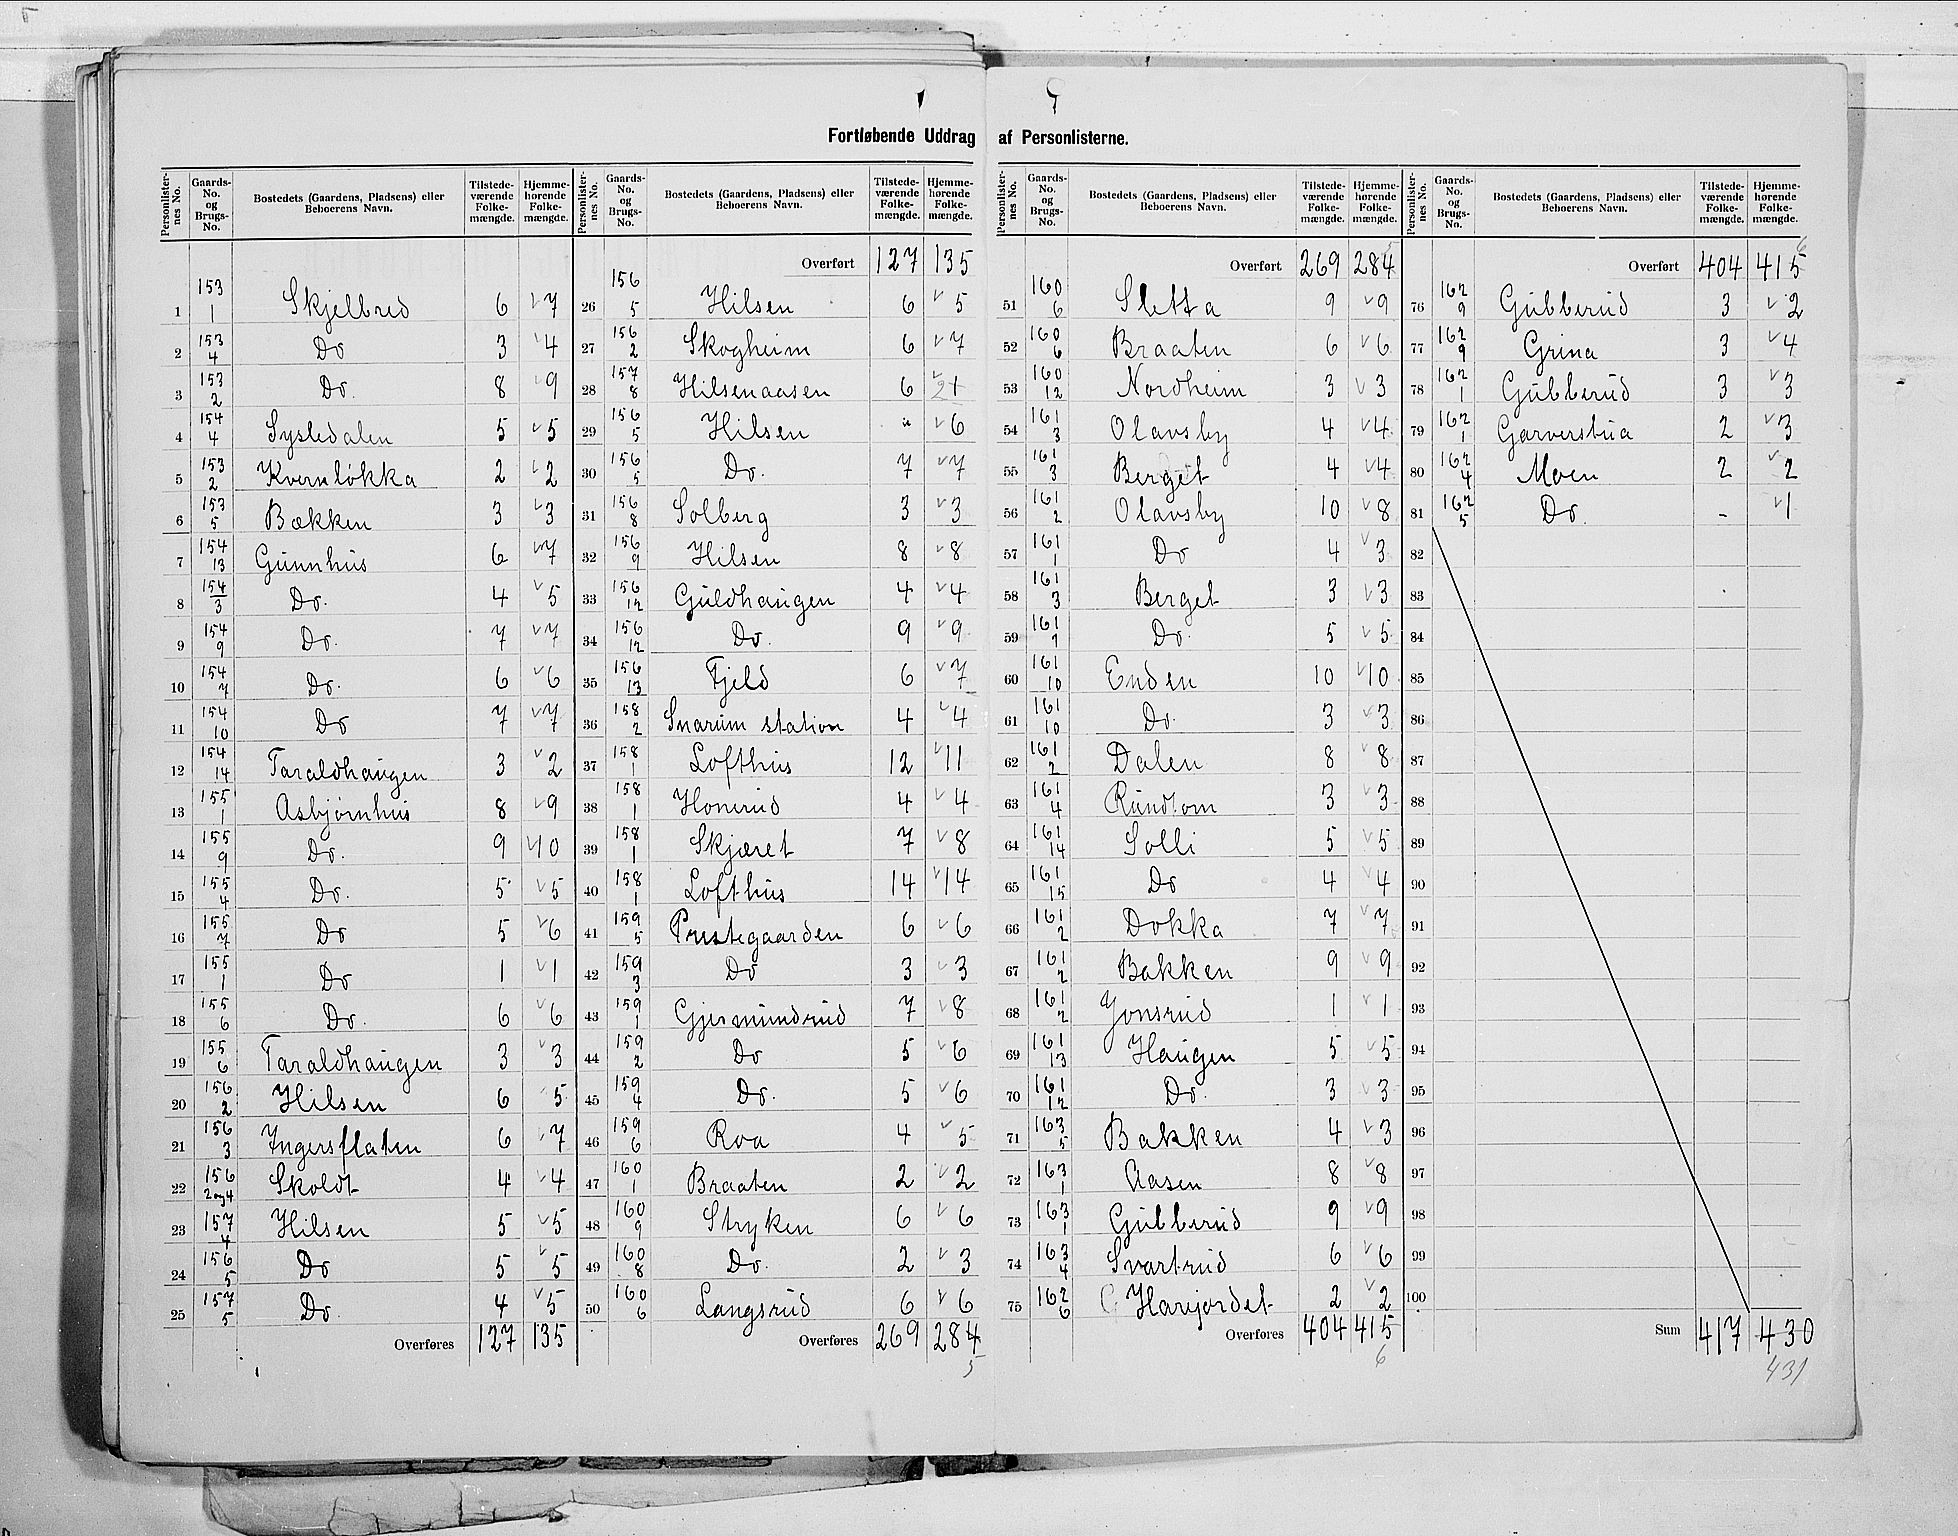 Fortløbende Uddrag af Personlisterne.
Personlister-nes No. | Gaards-No. og Brugs-No. | Bostedets (Gaardens, Pladsens) eller Beboerens Navn. | Tilstede-værende Folke-mængde. | Hjemme-hørende Folke-mængde.
1 153/1 Skjelbred 6 7
2 153/4 Do 3 4
3 153/2 Do. 8 9
4 154/4 Sysledalen 5 5
5 153/2 Kvernløkka 2 2
6 153/5 Bækken 3 3
7 154/13 Gunnhus 6 7
8 154/3 Do. 4 5
9 154/9 Do. 7 7
10 154/7 Do. 6 6
11 154/10 Do 7 7
12 154/14 Taraldhaugen 3 2
13 155/1 Asbjørnhus 8 9
14 155/9 Do. 9 10
15 155/4 Do. 5 5
16 155/7 Do 5 6
17 155/1 Do 1 1
18 155/6 Do. 6 6
19 155/6 Taraldhaugen 3 3
20 156/2 Hilsen 6 5
21 156/3 Ingersflaten 6 7
22 156/2 og 4 Skoldt 4 4
23 157/4 Hilsen 5 5
24 156/5 Do 5 5
25 157/5 Do. 4 5
Overføres 127 135
Personlister-nes No. | Gaards-No. og Brugs-No. | Bostedets (Gaardens, Pladsens) eller Beboerens Navn. | Tilstede-værende Folke-mængde. | Hjemme-hørende Folke-mængde.
Overført 127 135
26 156/5 Hilsen 6 5
27 156/2 Skogheim 6 7
28 157/8 Hilsenaasen 6
29 156/5 Hilsen " 6
30 156/5 Do. 7 7
31 156/8 Solberg 3 3
32 156/9 Hilsen 8 8
33 156/12 Guldhaugen 4 4
34 156/12 Do. 9 9
35 156/13 Fjeld 6 7
36 158/2 Snarum station 4 4
37 158/1 Lofthus 12 11
38 158/1 Honerud 4 4
39 158/1 Skjæret 7 8
40 158/1 Lofthus 14 14
41 159/5 Prestegaarden 6 6
42 159/3 Do 3 3
43 159/1 Gjermundrud 7 8
44 159/2 Do 5 6
45 159/4 Do. 5 6
46 159/6 Roa 4 5
47 160/1 Braaten 2 2
48 160/9 Stryken 6 6
49 160/8 Do. 2 3
50 160/6 Langsrud 6 6
Overføres 269 284
5
Personlister-nes No. | Gaards-No. og Brugs-No. | Bostedets (Gaardens, Pladsens) eller Beboerens Navn. | Tilstede-værende Folke-mængde. | Hjemme-hørende Folke-mængde.
5
Overført 269 284
51 160/6 Sletta 9 9
52 160/6 Braaten 6 6
53 160/12 Nordheim 3 3
54 161/3 Olavsby 4 4
55 161/3 Berget 4 4
56 161/2 Olavsby 10 8
57 161/1 Do 4 3
58 161/3 Berget 3 3
59 161/7 Do. 5 5
60 161/10 Enden 10 10
61 161/10 Do. 3 3
62 161/2 Dalen 8 8
63 161/4 Rundtom 3 3
64 161/14 Solli 5 5
65 161/15 Do 4 4
66 161/2 Dokka 7 7
67 161/2 Bakken 9 9
68 161/2 Jonsrud 1 1
69 161/13 Haugen 5 5
70 161/12 Do. 3 3
71 163/5 Bakken 4 3
72 163/1 Aasen 8 8
73 163/1 Gubberud 9 9
74 163/4 Svartrud 6 6
75 162/6 Harejordet 2 2
Overføres 404 415
6
Personlister-nes No. | Gaards-No. og Brugs-No. | Bostedets (Gaardens, Pladsens) eller Beboerens Navn. | Tilstede-værende Folke-mængde. | Hjemme-hørende Folke-mængde.
6
Overført 404 415
76 162/9 Gubberud 3 2
77 162/9 Grina 3 4
78 162/1 Gubberud 3 3
79 162/1 Garverstua 2 3
80 162/4 Moen 2 2
81 162/5 Do. - 1
82
83
84
85
86
87
88
89
90
91
92
93
94
95
96
97
98
99
100
Sum 417 430
431